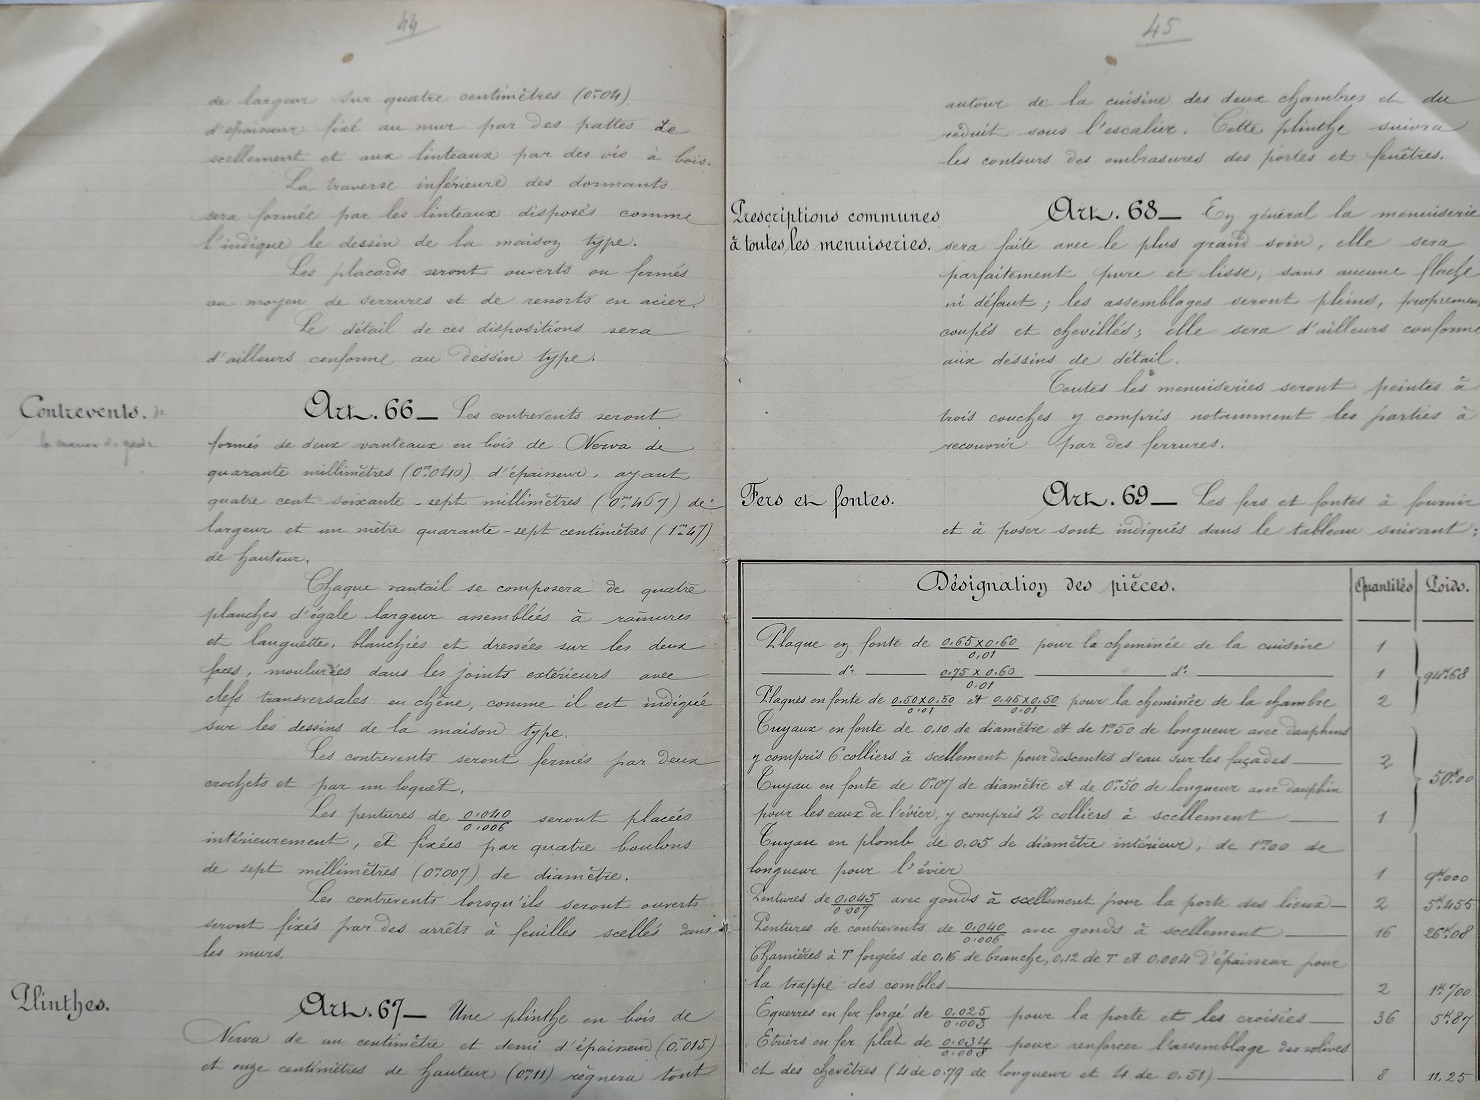 44
de largeur sur quatre centimètres (0m04)
d'épaisseur fixé au mur par des pattes de
scellement et aux linteaux par des vis à bois.
La traverse inférieure des dormants
sera formée par les linteaux disposés comme
l'indique le dessin de la maison type.
Les placards seront ouverts ou fermés
au moyen de serrures et de ressorts en acier.
Le détail de ces dispositions sera
d'ailleurs conforme au dessin type.
Contrevents. de
la maison de garde
Art. 66 _ Les contrevents seront
formés de deux vanteaux en bois de Nerva de
quarante millimètres (0m040) d'épaisseur, ayant
quatre cent soixante-sept millimètres (0m467) de
largeur et un mètre quarante-sept centimètres (1m47)
de hauteur.
Chaque vantail se composera de quatre
planches d'égale largeur assemblées à rainures
et languettes, blanchies et dressées sur les deux
faces, moulurées dans les joints extérieurs avec
clefs transversales en chêne, comme il est indiqué
sur les dessins de la maison type.
Les contrevents seront fermés par deux
crochets et par un loquet.
Les pentures de 0.040/0.006 seront placées
intérieurement, et fixées par quatre boulons
de sept millimètres (0m007) de diamètre.
Les contrevents lorsqu'ils seront ouverts
seront fixés par des arrêts à feuilles scellés dans
les murs.
Plinthes.
Art. 67 _ Une plinthe en bois de
Nerva de un centimètre et demi d'épaisseur (0m015)
et onze centimètres de hauteur (0m11) règnera tout
45
autour de la cuisine des deux chambres et du
réduit sous l'escalier. Cette plinthe suivra
les contours des embrasures des portes et fenêtres.
Prescriptions communes
à toutes les menuiseries.
Art. 68 _ En général la menuiserie
sera faite avec le plus grand soin, elle sera
parfaitement pure et lisse, sans aucune flache
ni défaut ; les assemblages seront pleins, proprement
coupés et chevillés ; elle sera d'ailleurs conforme
aux dessins de détail.
Toutes les menuiseries seront peintes à
trois couches y compris notamment les parties à
recouvrir par des ferrures.
Fers et fontes.
Art. 69 _ Les fers et fontes à fournir
et à poser sont indiqués dans le tableau suivant :
Désignation des pièces. Quantités Poids.
Plaque en fonte de 0.65 x 0.60/0.01 pour la cheminée de la cuisine 1
do 0.75 x 0.60/0.01 do 1 94k68
Plaques en fonte de 0.50x0.50/0.01 et 0.45x0.50/0.01 pour la cheminée de la chambre 2
Tuyaux en fonte de 0.10 de diamètre et de 1m50 de longueur avec dauphins
y compris 6 colliers à scellement pour descentes d'eau sur les façades 2
Tuyau en fonte de 0m07 de diamètre et de 0m50 de longueur avec dauphin 50k00
pour les eaux de l'évier, y compris 2 colliers à scellement 1
Tuyau en plomb de 0.05 de diamètre intérieur, de 1m00 de
longueur pour l'évier 1 9k000
Pentures de 0.045/0.007 avec gonds à scellement pour la porte des lieux 2 5k455
Pentures de contrevents de 0.040/0.006 avec gonds à scellement 16 26k08
Charnières à T forgées de 0.16 de branche, 0.12 de T et 0.004 d'épaisseur pour
la trappe des combles 2 1k700
Equerres en fer forgé de 0.025/0.003 pour la porte et les croisées 36 5k87
Etriers en fer plat de 0.034/0.008 pour renforcer l'assemblage des solives
et des chevêtres (4 de 0.79 de longueur et 4 de 0.51) 8 11.25